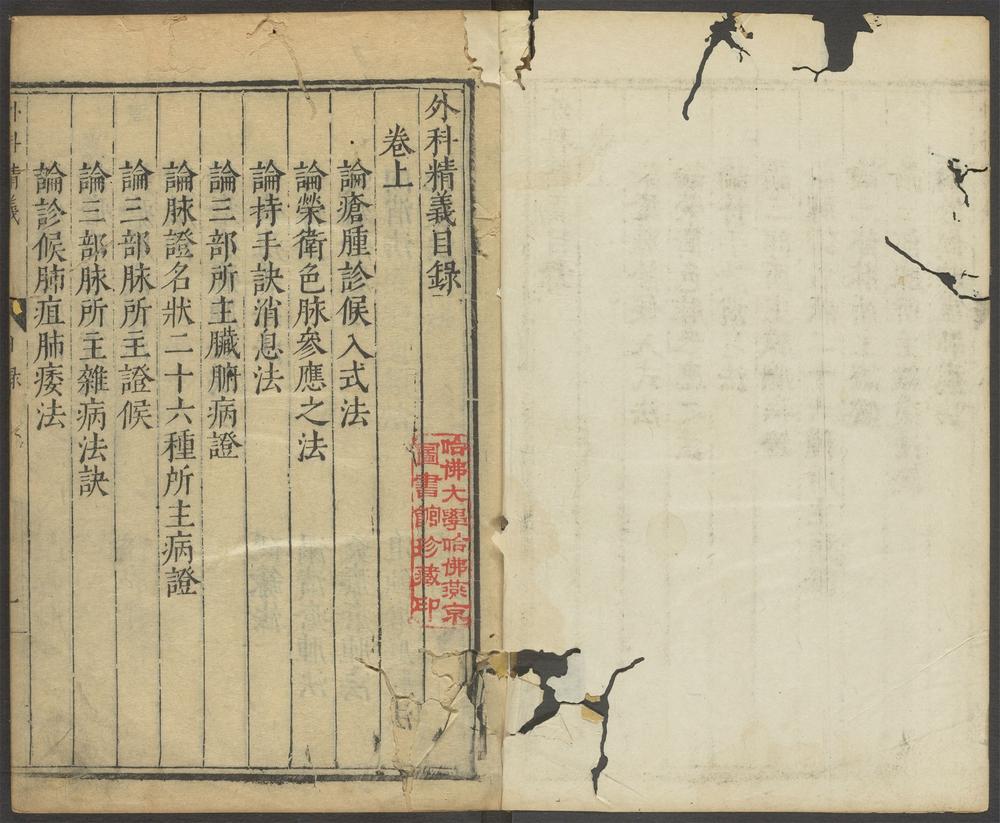 外科精義目錄
卷上
論瘡腫診候入式法
論榮衛色脉參應之法
論持手訣消息法
論三部所主臟腑病證
論脉證名狀二十六種所主病證
論三部脉所主證候
論三部脉所主雜病法訣
論診候肺疽肺痿法
哈佛大學哈佛燕京
圖書館珍藏印